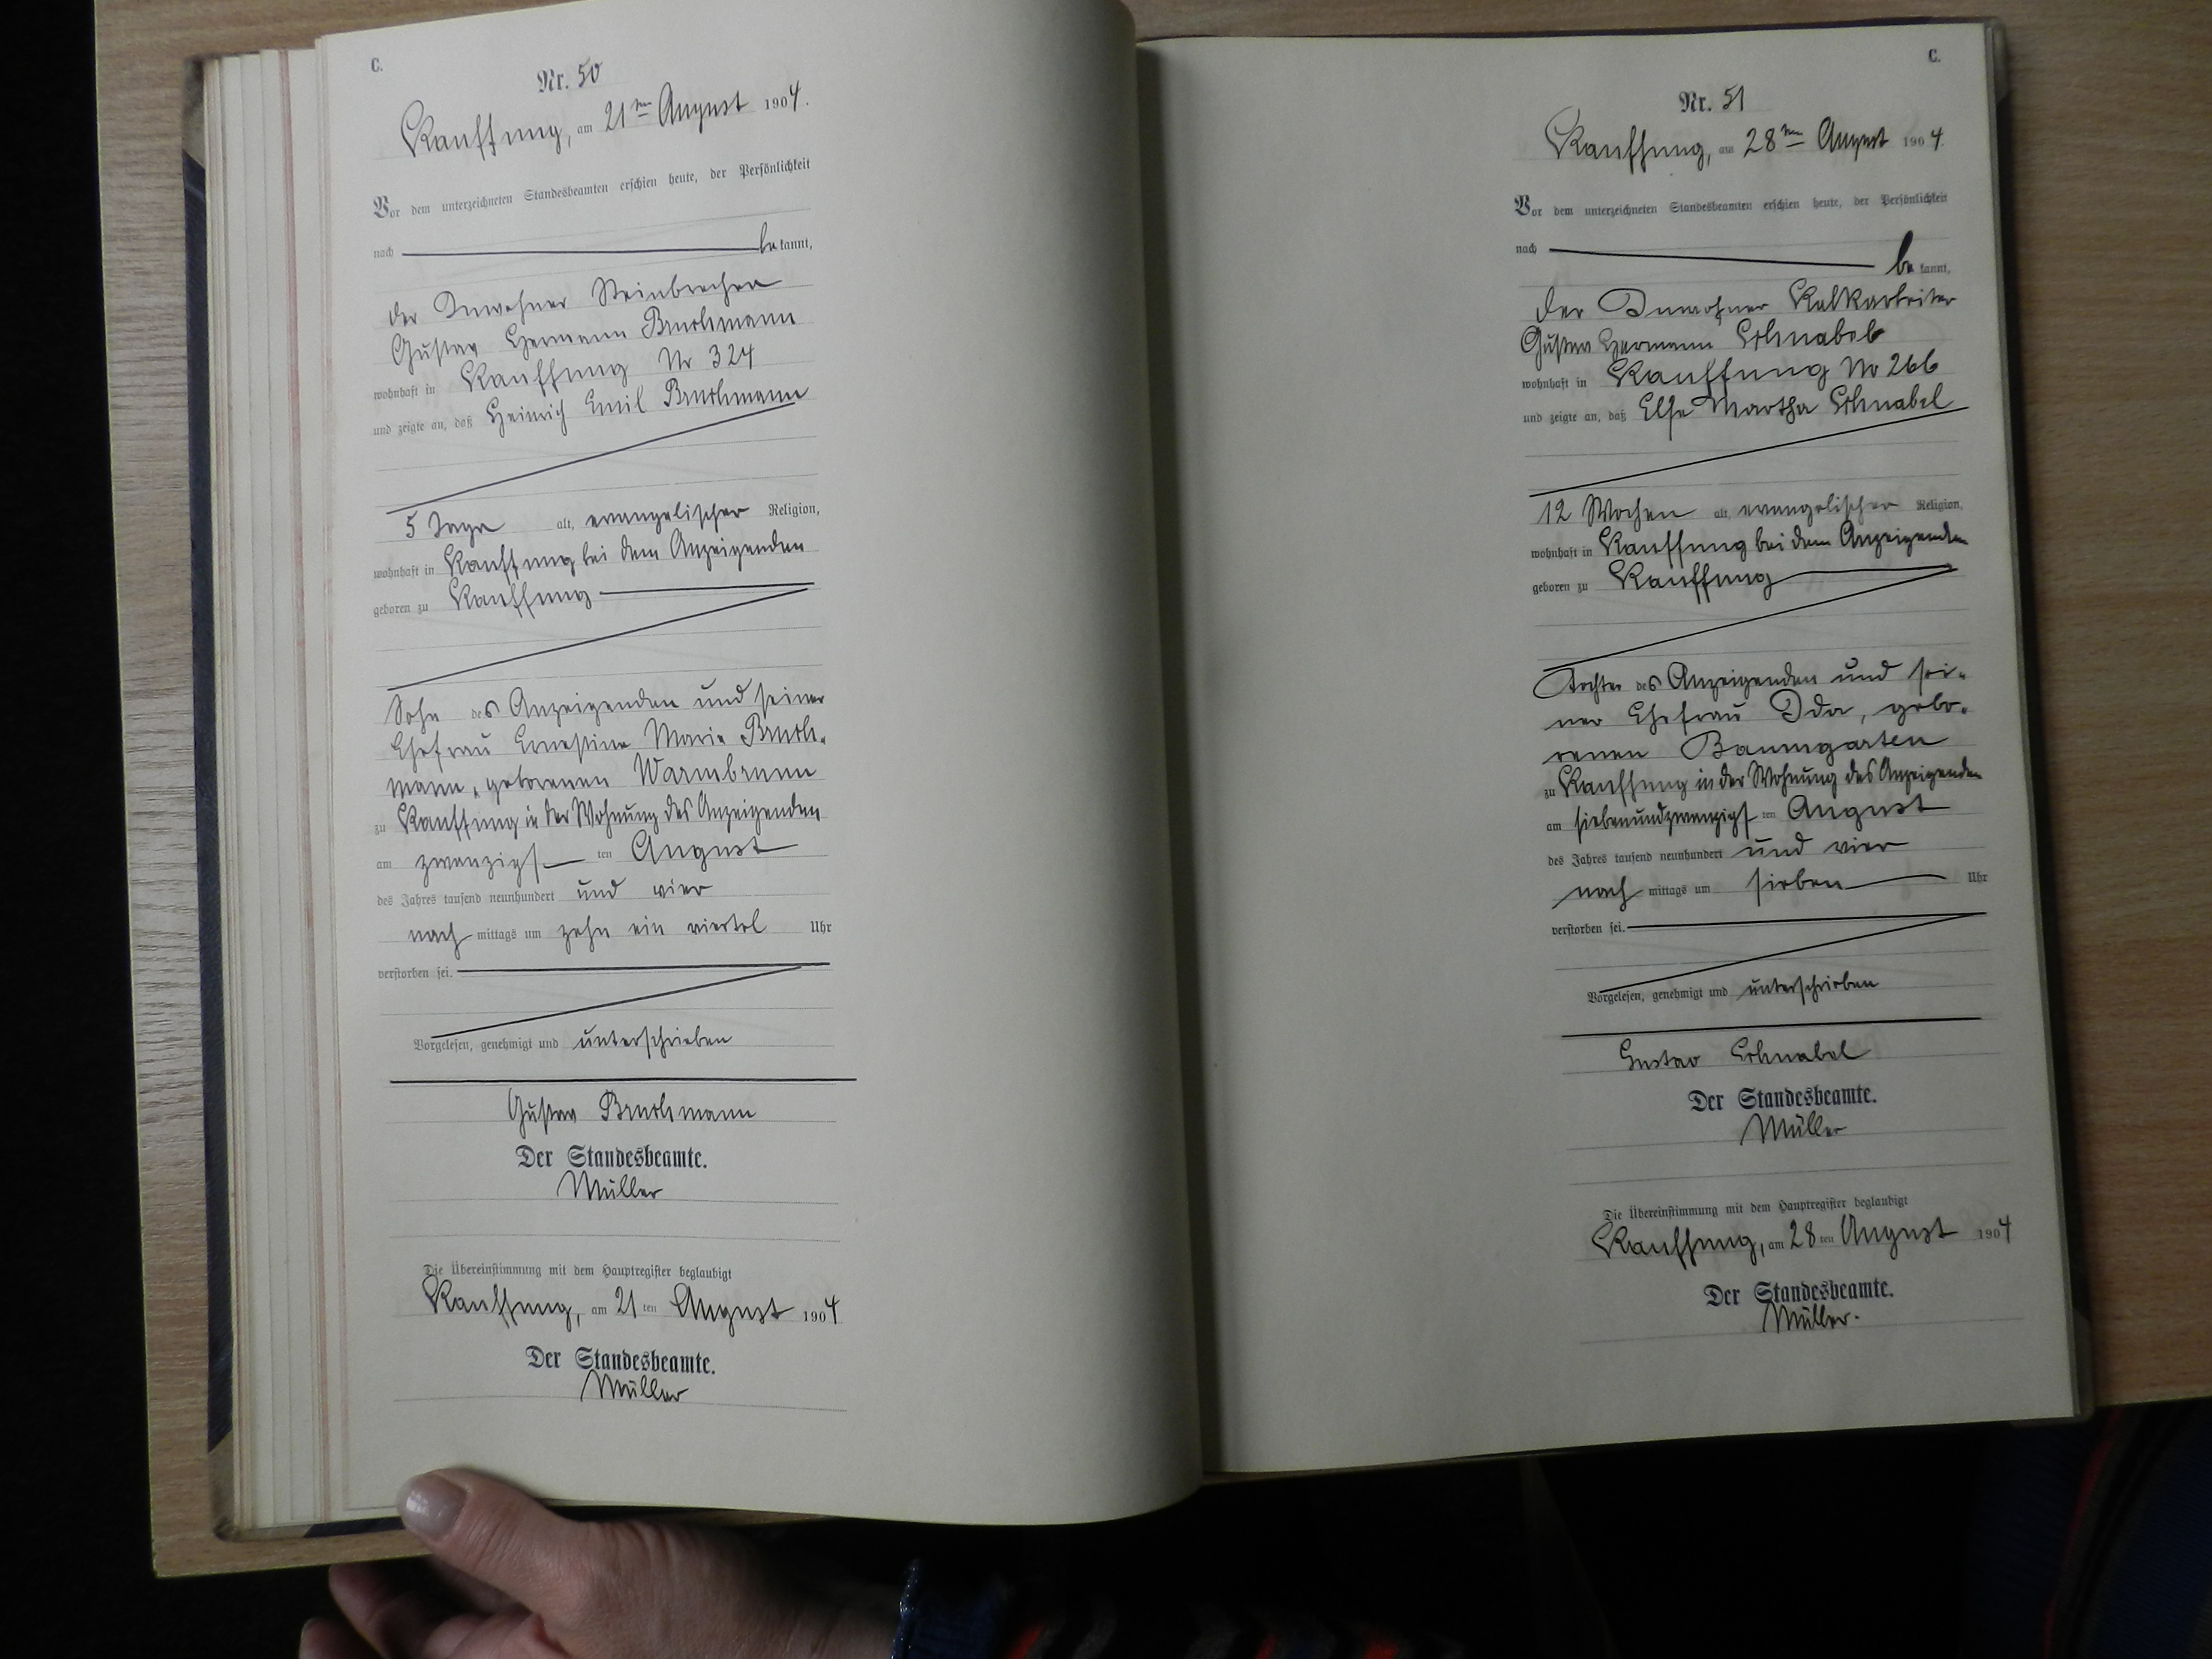 C.
Nr. 50
Kauffung, am 21ten August 1904.
Vor dem unterzeichneten Standesbeamten erschien heute, der Persönlichkeit
nach be kannt,
der Inwohner Steinbrecher
Gustav Hermann Bruchmann
wohnhaft in Kauffung Nr 324
und zeigte an, daß Heinrich Emil Bruchmann
5 Tage alt, evangelischer Religion,
wohnhaft in Kauffung bei dem Anzeigenden
geboren zu Kauffung
Sohn des Anzeigenden und seiner
Ehefrau Ernestine Marie Bruch-
mann, geborenen Warmbrunn
zu Kauffung in der Wohnung des Anzeigenden
am zwanzigs ten August
des Jahres tausend neunhundert und vier
nach mittags um zehn ein viertel Uhr
verstorben sei.
Vorgelesen, genehmigt und unterschrieben
Gustav Bruchmann
Der Standesbeamte.
Müller
Die Übereinstimmung mit dem Hauptregister beglaubigt
Kauffung, am 21 ten August 1904
Der Standesbeamte.
Müller
C.
Nr. 51
Kauffung, am 28ten August 1904.
Vor dem unterzeichneten Standesbeamten erschien heute, der Persönlichkeit
nach be kannt,
der Inwohner Kalkarbeiter
Gustav Hermann Schnabel
wohnhaft in Kauffung No 266
und zeigte an, daß Else Martha Schnabel
12 Wochen alt, evangelischer Religion,
wohnhaft in Kauffung bei dem Anzeigenden
geboren zu Kauffung
Tochter des Anzeigenden und sei-
ner Ehefrau Ida, gebo-
renen Baumgarten
zu Kauffung in der Wohnung des Anzeigenden
am siebenundzwanzigs ten August
des Jahres tausend neunhundert und vier
nach mittags um sieben Uhr
verstorben sei.
Vorgelesen, genehmigt und unterschrieben
Gustav Schnabel
Der Standesbeamte.
Müller
Die Übereinstimmung mit dem Hauptregister beglaubigt
Kauffung, am 28 ten August 1904
Der Standesbeamte.
Müller.